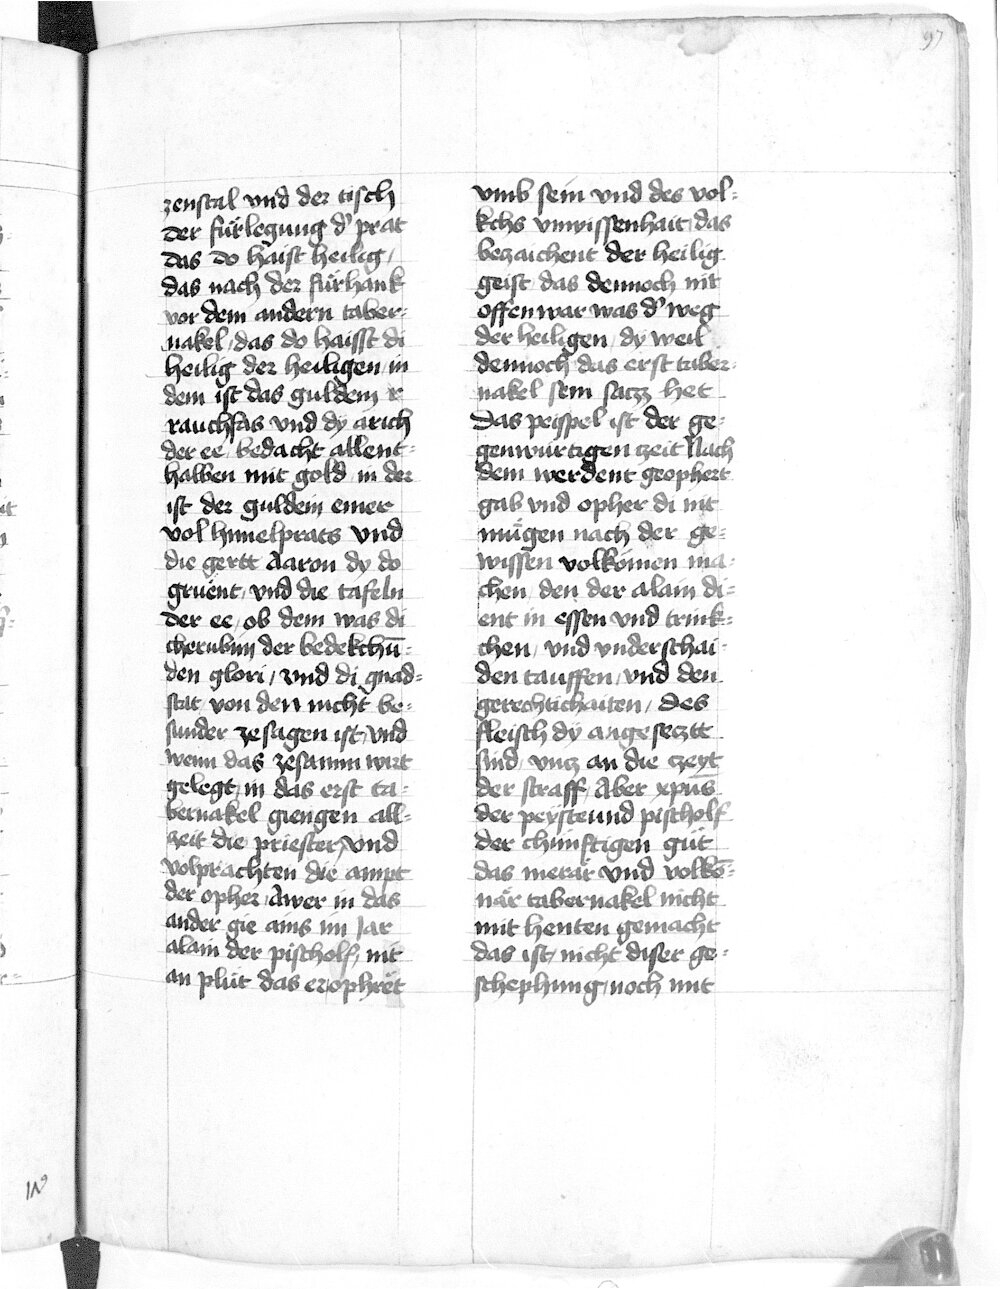 97
zenstal vnd der tisch
der fürlegung d' prat
das do haist heilig /
das nach der fürhank
vor dem andern taber-
nakel / das do haisst di
heilig der heiligen / in
dem ist das guldem r
rauchfas vnd dy arich
der ee / bedacht allent-
halben mit gold / in der
ist der guldein emer
vol himelprats vnd
die gertt Aaron dy do
grüent / vnd die tafeln
der ee / ob dem was di
cherubim der bedekchū-
den glori / vnd di gnad-
stat / von den nicht be-
sunder ze sagen ist / vnd
wenn das zesamm wirt
gelegt / in das erst ta-
bernakel giengen all-
zeit die priester / vnd
volprachten die ampt
der opher / Awer in das
ander gie ains im Jar
alain der pischolf / nit
an plüt das er ophret
vmb sein vnd des vol-
kchs vnwissenhait / das
bezaichent der heilig
geist / das dennoch nit
offenwar was d' weg
der heiligen / dy weil
dennoch das erst taber-
nakel sein sacz het
Das peispel ist der ge-
genwürtigen zeit Nach
dem werdent geophert
gab vnd opher di nit
mügen nach der ge-
wissen volkömen ma-
chen / den der alain di-
ent in essen vnd trink-
chen / vnd vnderschai-
den tauffen / vnd den
gerechtichaiten / des
fleisch dÿ angeseczt
sind / vncz an die czeyt
der straff / Aber xpūs
der peysteund pischolf
der chünftigen güt
das merär vnd volkō-
när tabernakel nicht
mit henten gemacht
das ist / nicht diser ge-
schephung / noch mit